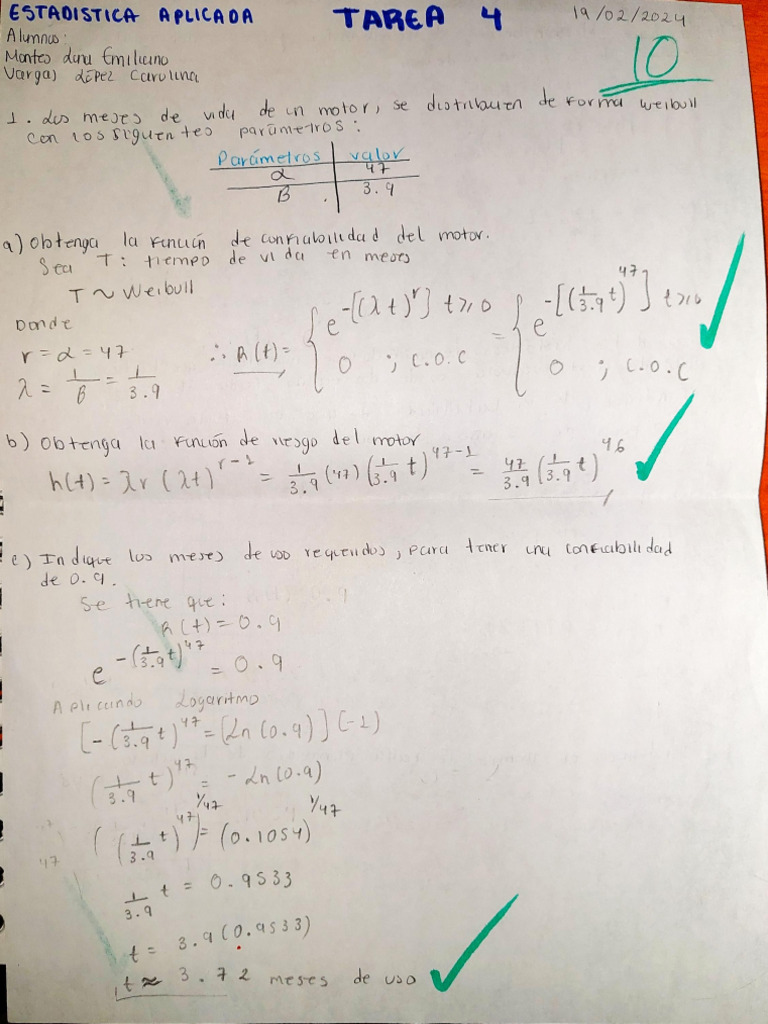 ESTADISTICA APLICADA TAREA 4 19/02/2024
Alumnos:
Montes Luna Emiliano
Vargas López Carolina
10
1. Los meses de vida de un motor, se distribuyen de forma Weibull
con los siguientes parámetros:
Parámetros valor
α 47
β 3.9
a) Obtenga la función de confiabilidad del motor.
Sea T: tiempo de vida en meses
T ~ Weibull
Donde
r = α = 47
λ = 1/β = 1/3.9
∴ R(t) = { e^-[(λt)^r] t≥0 = { e^-[(1/3.9 t)^47] t≥0
0 ; c.o.c 0 ; c.o.c
b) Obtenga la función de riesgo del motor
h(t) = λr(λt)^r-1 = 1/3.9 (47)(1/3.9 t)^47-1 = 47/3.9 (1/3.9 t)^46
c) Indique los meses de uso requeridos, para tener una confiabilidad
de 0.9.
Se tiene que:
R(t) = 0.9
e^-(1/3.9 t)^47 = 0.9
Aplicando Logaritmo
[-(1/3.9 t)^47 = [Ln(0.9)] (-1)
(1/3.9 t)^47 = -Ln(0.9)
((1/3.9 t)^47)^1/47 = (0.1054)^1/47
1/3.9 t = 0.9533
t = 3.9(0.9533)
t ≈ 3.72 meses de uso